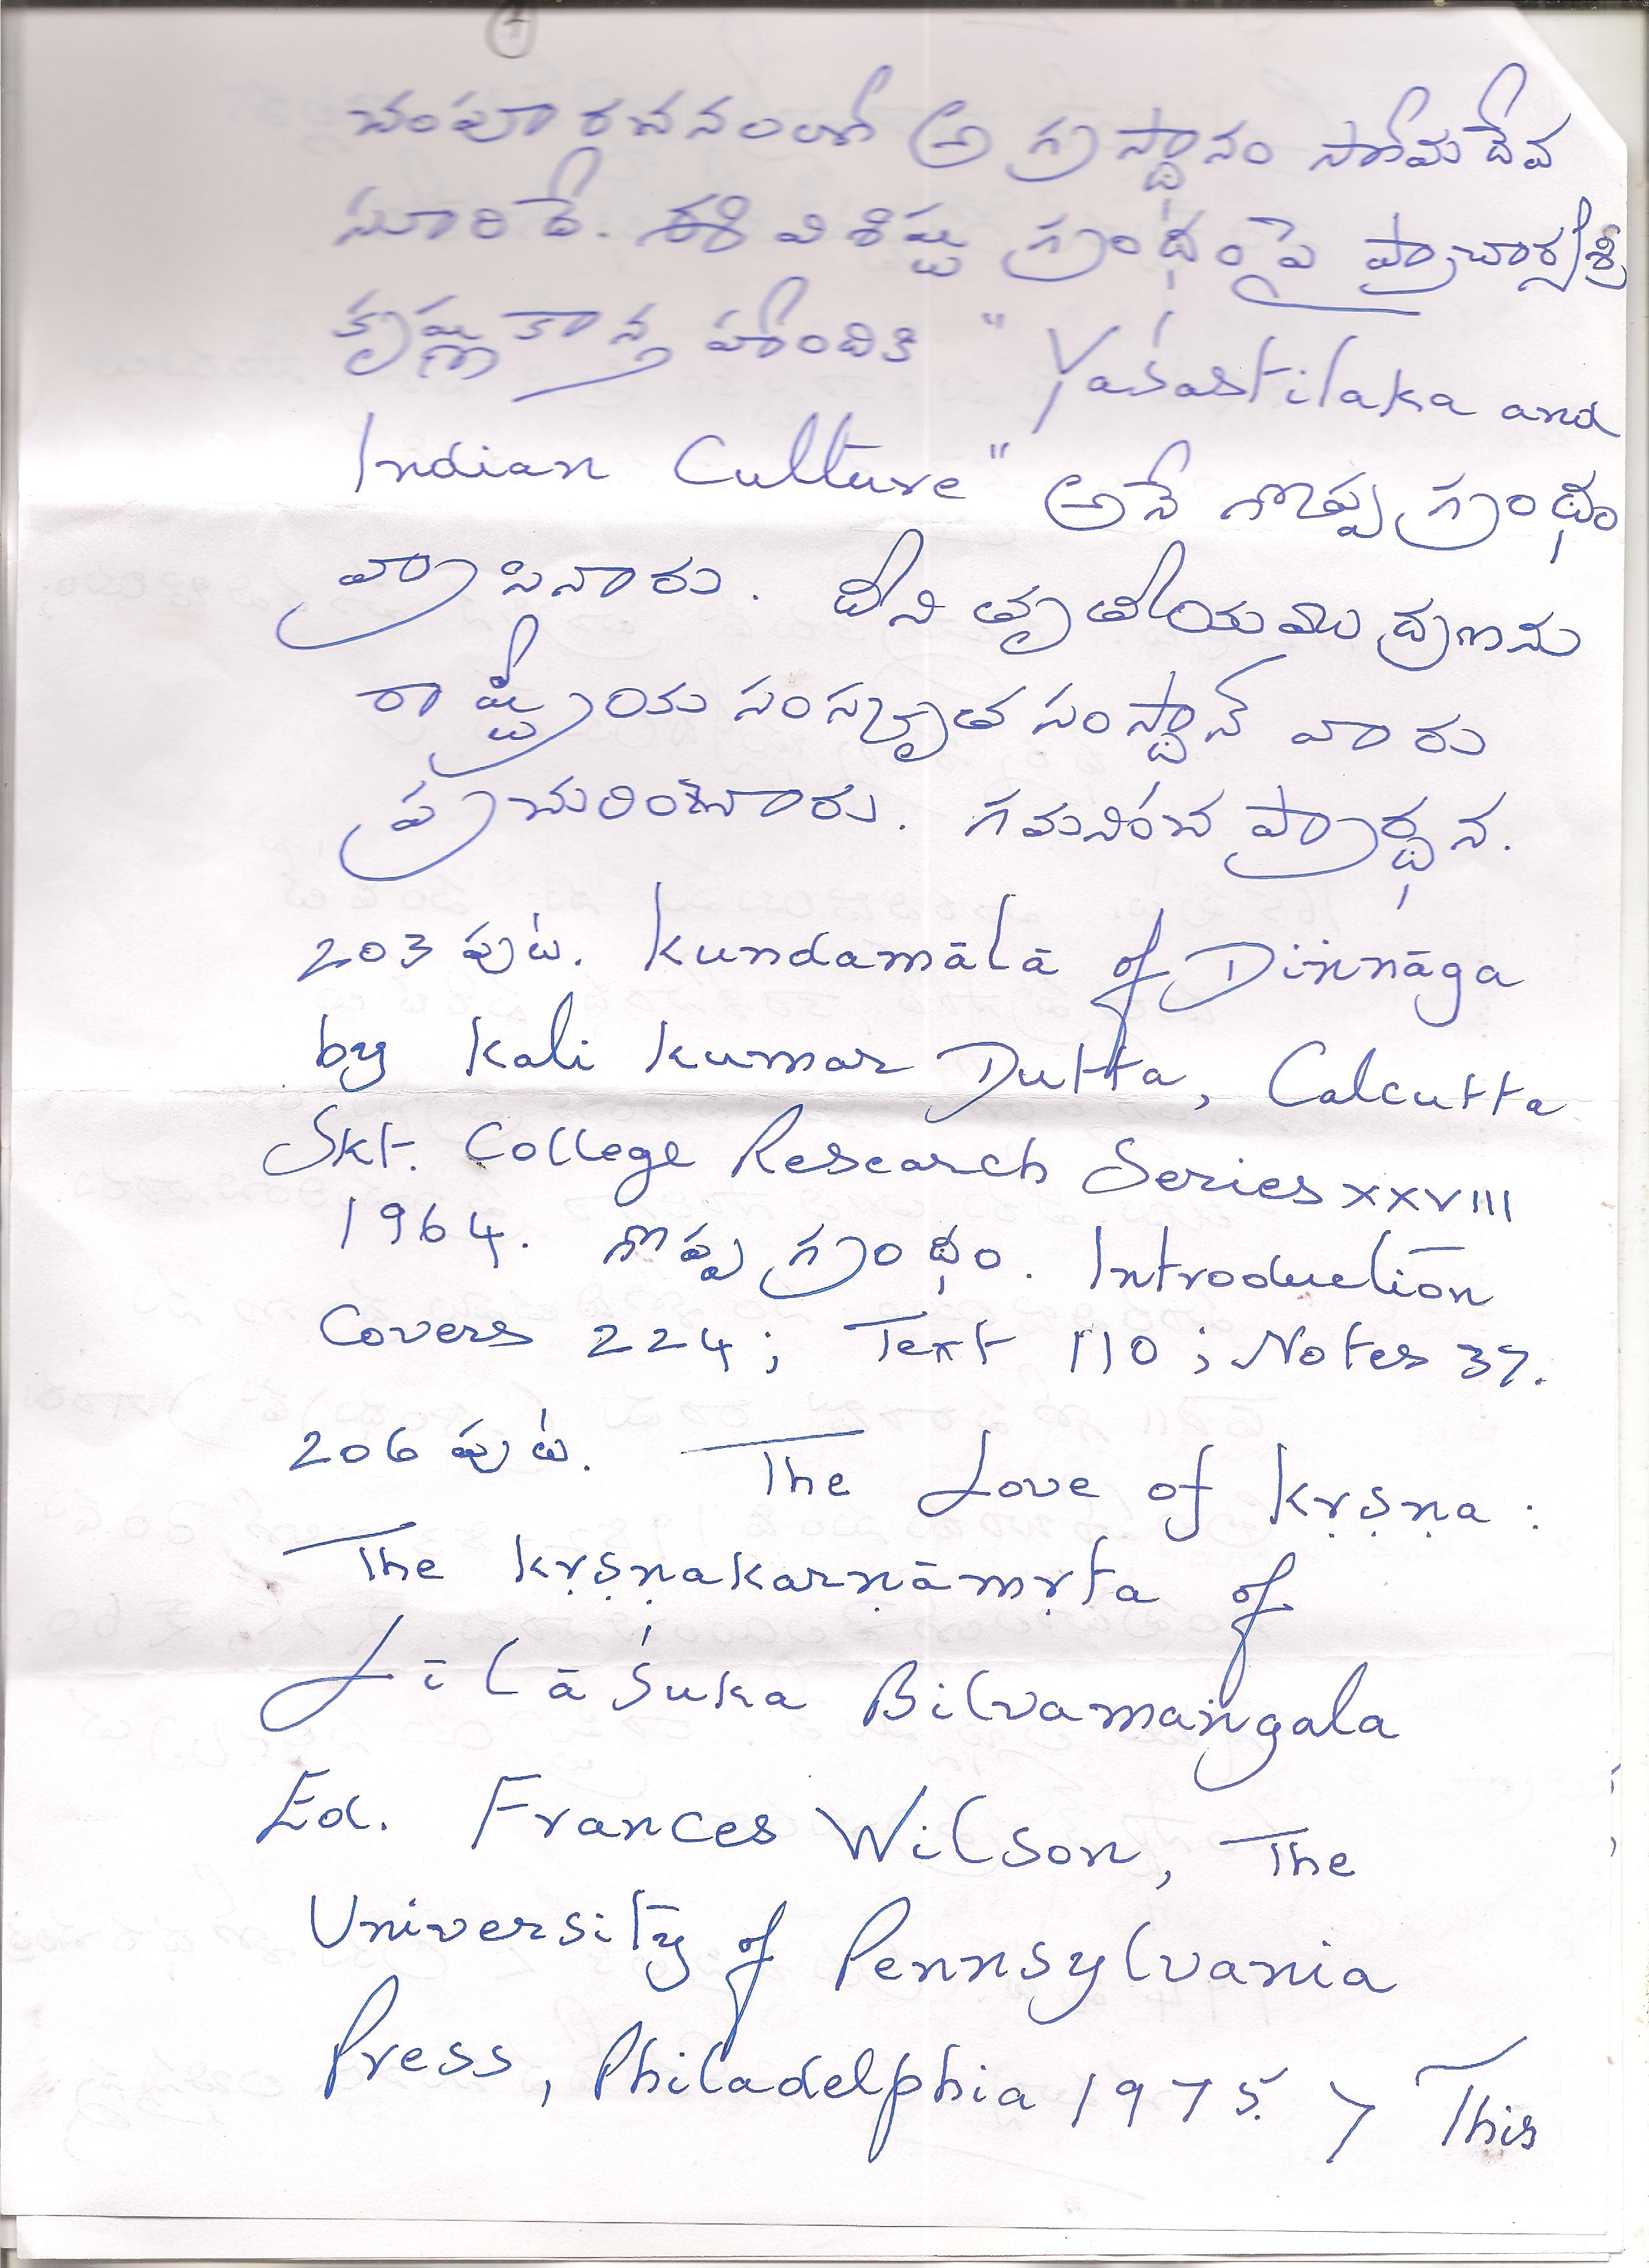 చంపూ రచనలలో అగ్రస్థానం సోమదేవ
సూరిదే. ఈ విశిష్ట గ్రంథంపై ప్రాచార్య శ్రీ
కృష్ణకాన్త హందికి "Yaśastilaka and
Indian Culture" అనే గొప్ప గ్రంథం
వ్రాసినారు. దీని తృతీయ ముద్రణను
రాష్ట్రీయ సంస్కృత సంస్థాన్ వారు
ప్రచురించారు. గమనించ ప్రార్థన.
203 పుట. Kundamālā of Diṅnāga
by Kali Kumar Dutta, Calcutta
Skt. College Research Series XXVIII
1964. గొప్ప గ్రంథం. Introduction
Covers 224; Text 110; Notes 37.
206 పుట. The Love of Kṛṣṇa:
The Kṛṣṇakarṇāmṛta of
Līlāśuka Bilvamaṅgala
Ed. Frances Wilson, The
University of Pennsylvania
Press, Philadelphia 1975. > This